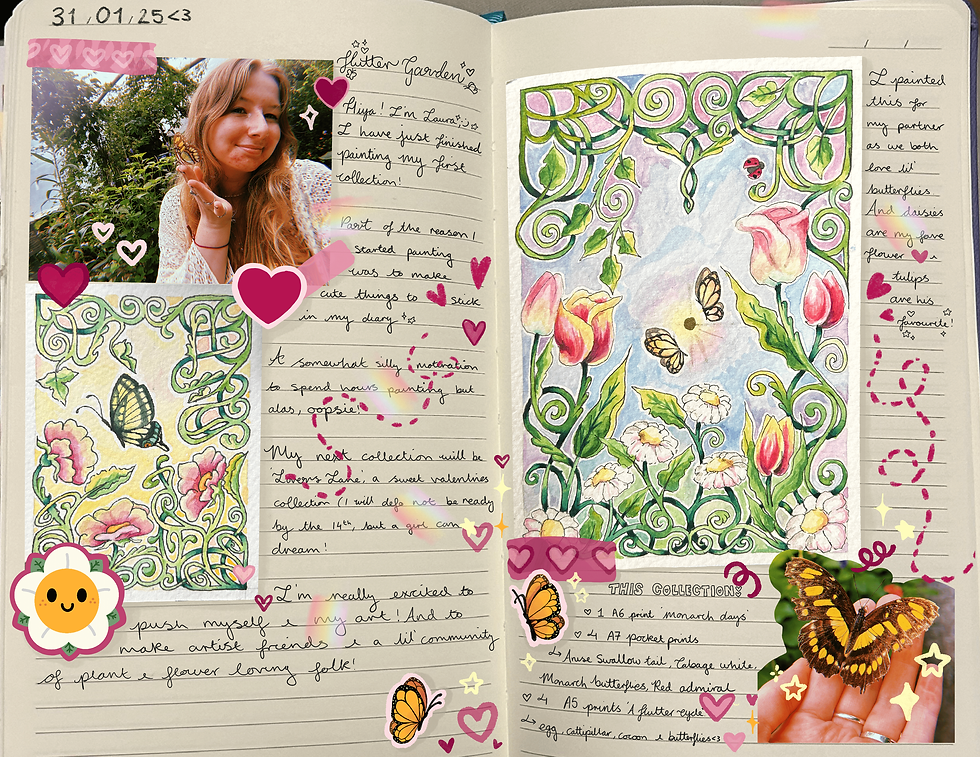 31/01/25<3
flutter Garden
Hiya! I'm Laura
I have just finished
painting my first
collection!
Part of the reason I
started painting
was to make
cute things to stick
in my diary
A somewhat silly motivation
to spend hours painting but
alas, oopsie!
My next collection will be
Lovers Lane, a sweet valentines
collection (I will defo not be ready
by the 14th, but a girl can
dream!
I'm really excited to
push myself & my art! And to
make artist friends & a lil' community
of plant & flower loving folk!
/ /
I painted
this for
my partner
as we both
love lil'
butterflies
And daisies
are my fave
flower &
tulips
are his
favourite!
THIS COLLECTION:
♡ 1 A6 print 'monarch days'
♡ 4 A7 pocket prints
↳ Anise Swallow tail, Cabage white,
Monarch butterflies, Red admiral
♡ 4 A5 prints 'A flutter-cycle
↳ egg, cattipillar, cocoon & butterflies<3